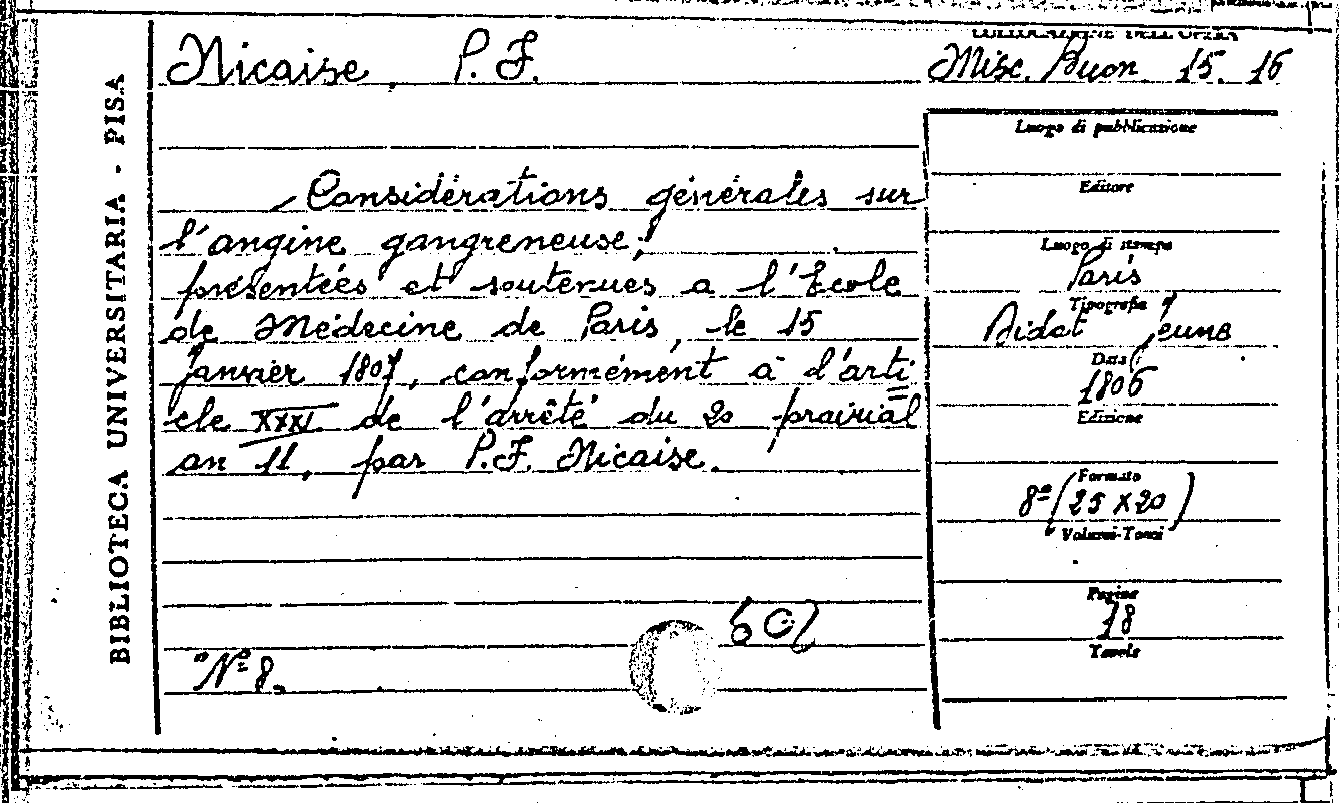 BIBLIOTECA UNIVERSITARIA - PISA
Nicaise, P. F.
COLLOCAZIONE DELL'OPERA
Misc. Buon. 15. 16
Considérations générales sur
l'angine gangreneuse;
présentées et soutenues a l'Ecole
de Médecine de Paris, le 15
Janvier 1807, conformément à d'arti
cle XXXI de l'arrêté du 20 prairial
an 11, par P.F. Nicaise.
Nº 8.
Luogo di pubblicazione
Editore
Luogo di stampa
Paris
Tipografia
Didot jeune
Data
1806
Edizione
Formato
8º (25 x 20)
Volumi-Tomi
Pagine
18
Tavole